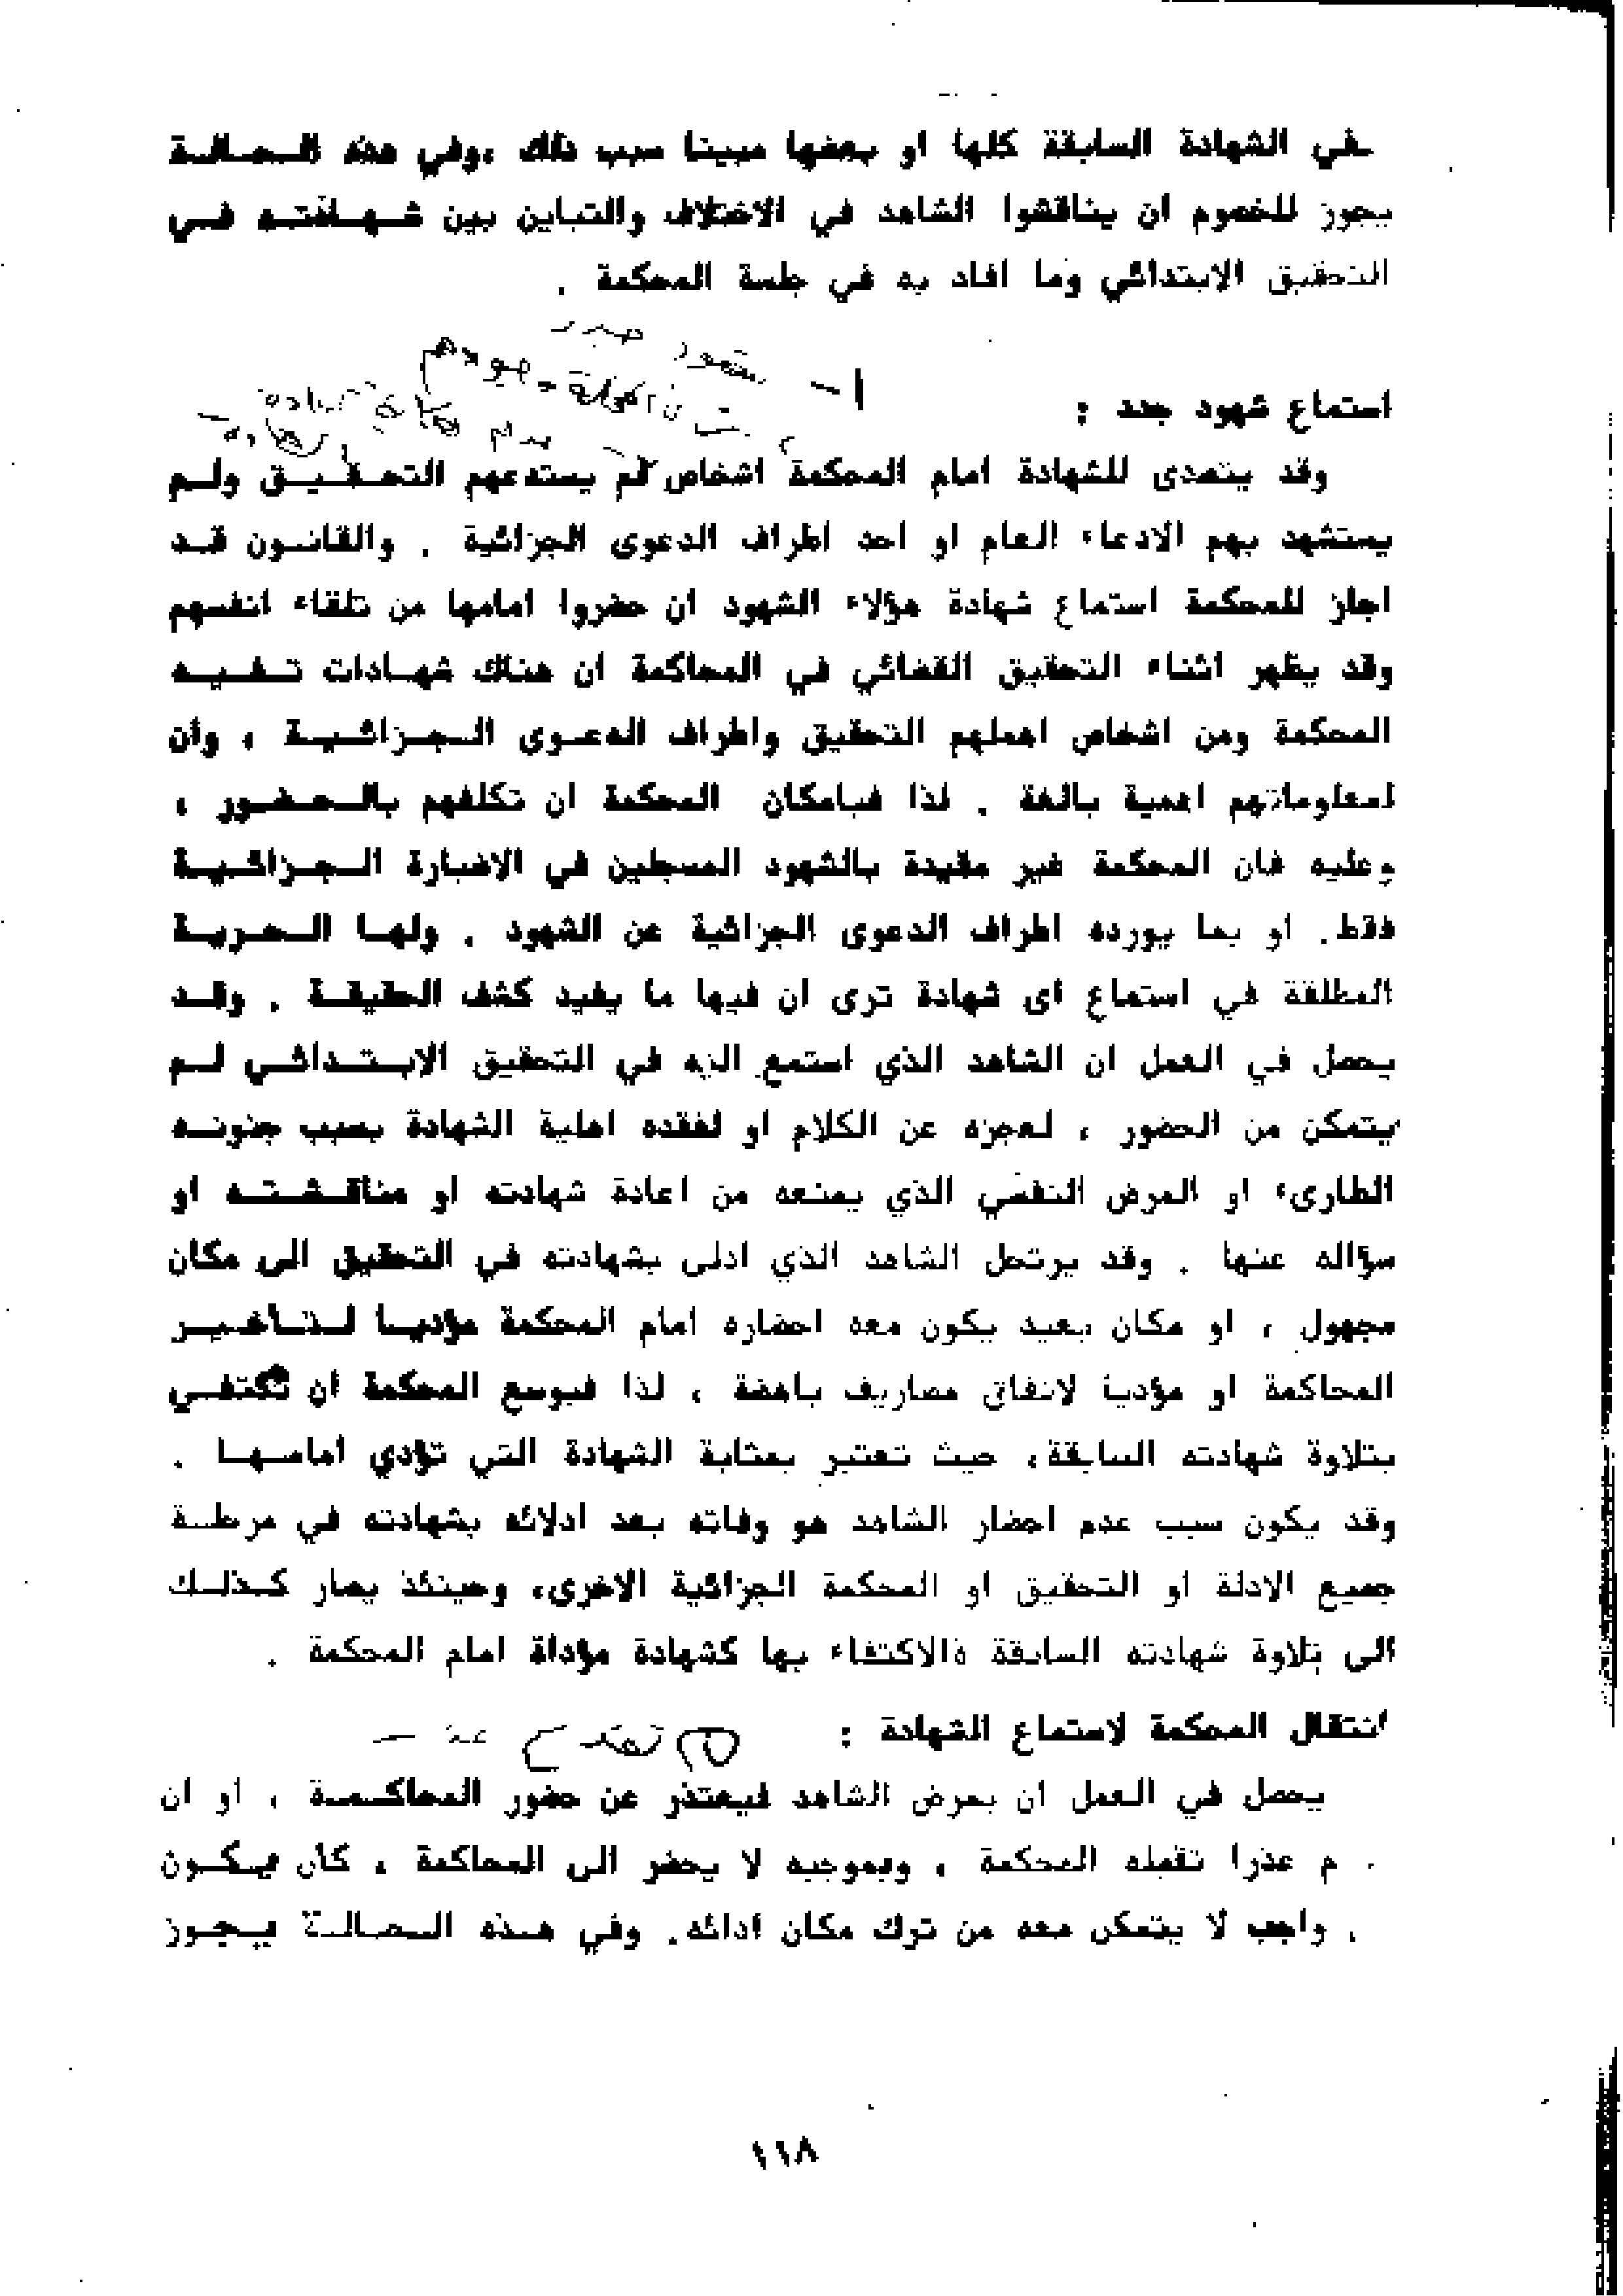 في الشهادة السابقة كلها او بعضها مبينا سبب ذلك ،وفي هذه الحالة
يجوز للخصوم ان يناقشوا الشاهد في الاختلاف والتباين بين شهادته في
التحقيق الابتدائي وما افاد به في جلسة المحكمة .
استماع شهود جدد :
وقد يتصدى للشهادة امام المحكمة اشخاص لم يستدعهم التحقيق ولم
يستشهد بهم الادعاء العام او احد اطراف الدعوى الجزائية . والقانون قد
اجاز للمحكمة استماع شهادة هؤلاء الشهود ان حضروا امامها من تلقاء انفسهم
وقد يظهر اثناء التحقيق القضائي في المحاكمة ان هناك شهادات تفيد
المحكمة ومن اشخاص اهملهم التحقيق واطراف الدعوى الجزائية ، وان
لمعلوماتهم اهمية بالغة . لذا فبامكان المحكمة ان تكلفهم بالحضور ،
وعليه فان المحكمة غير مقيدة بالشهود المسجلين في الاضبارة الجزائية
فقط. او بما يورده اطراف الدعوى الجزائية عن الشهود . ولها الحرية
المطلقة في استماع اى شهادة ترى ان فيها ما يفيد كشف الحقيقة . وقد
يحصل في العمل ان الشاهد الذي استمع اليه في التحقيق الابتدائي لم
يتمكن من الحضور ، لعجزه عن الكلام او لفقده اهلية الشهادة بسبب جنونه
الطارىء او المرض النفسي الذي يمنعه من اعادة شهادته او مناقشته او
سؤاله عنها . وقد يرتحل الشاهد الذي ادلى بشهادته في التحقيق الى مكان
مجهول ، او مكان بعيد يكون معه احضاره امام المحكمة مؤديا لتأخير
المحاكمة او مؤديا لانفاق مصاريف باهضة ، لذا فبوسع المحكمة ان تكتفي
بتلاوة شهادته السابقة، حيث تعتبر بمثابة الشهادة التي تؤدي امامها .
وقد يكون سبب عدم احضار الشاهد هو وفاته بعد ادلائه بشهادته في مرحلة
جميع الادلة او التحقيق او المحكمة الجزائية الاخرى، وحينئذ يصار كذلك
الى تلاوة شهادته السابقة ةالاكتفاء بها كشهادة مؤداة امام المحكمة .
انتقال المحكمة لاستماع الشهادة :
يحصل في العمل ان يمرض الشاهد فيعتذر عن حضور المحاكمة ، او ان
م عذرا تقبله المحكمة ، وبموجبه لا يحضر الى المحاكمة ، كأن يكون
واجب لا يتمكن معه من ترك مكان ادائه. وفي هذه الحالة يجوز
١١٨